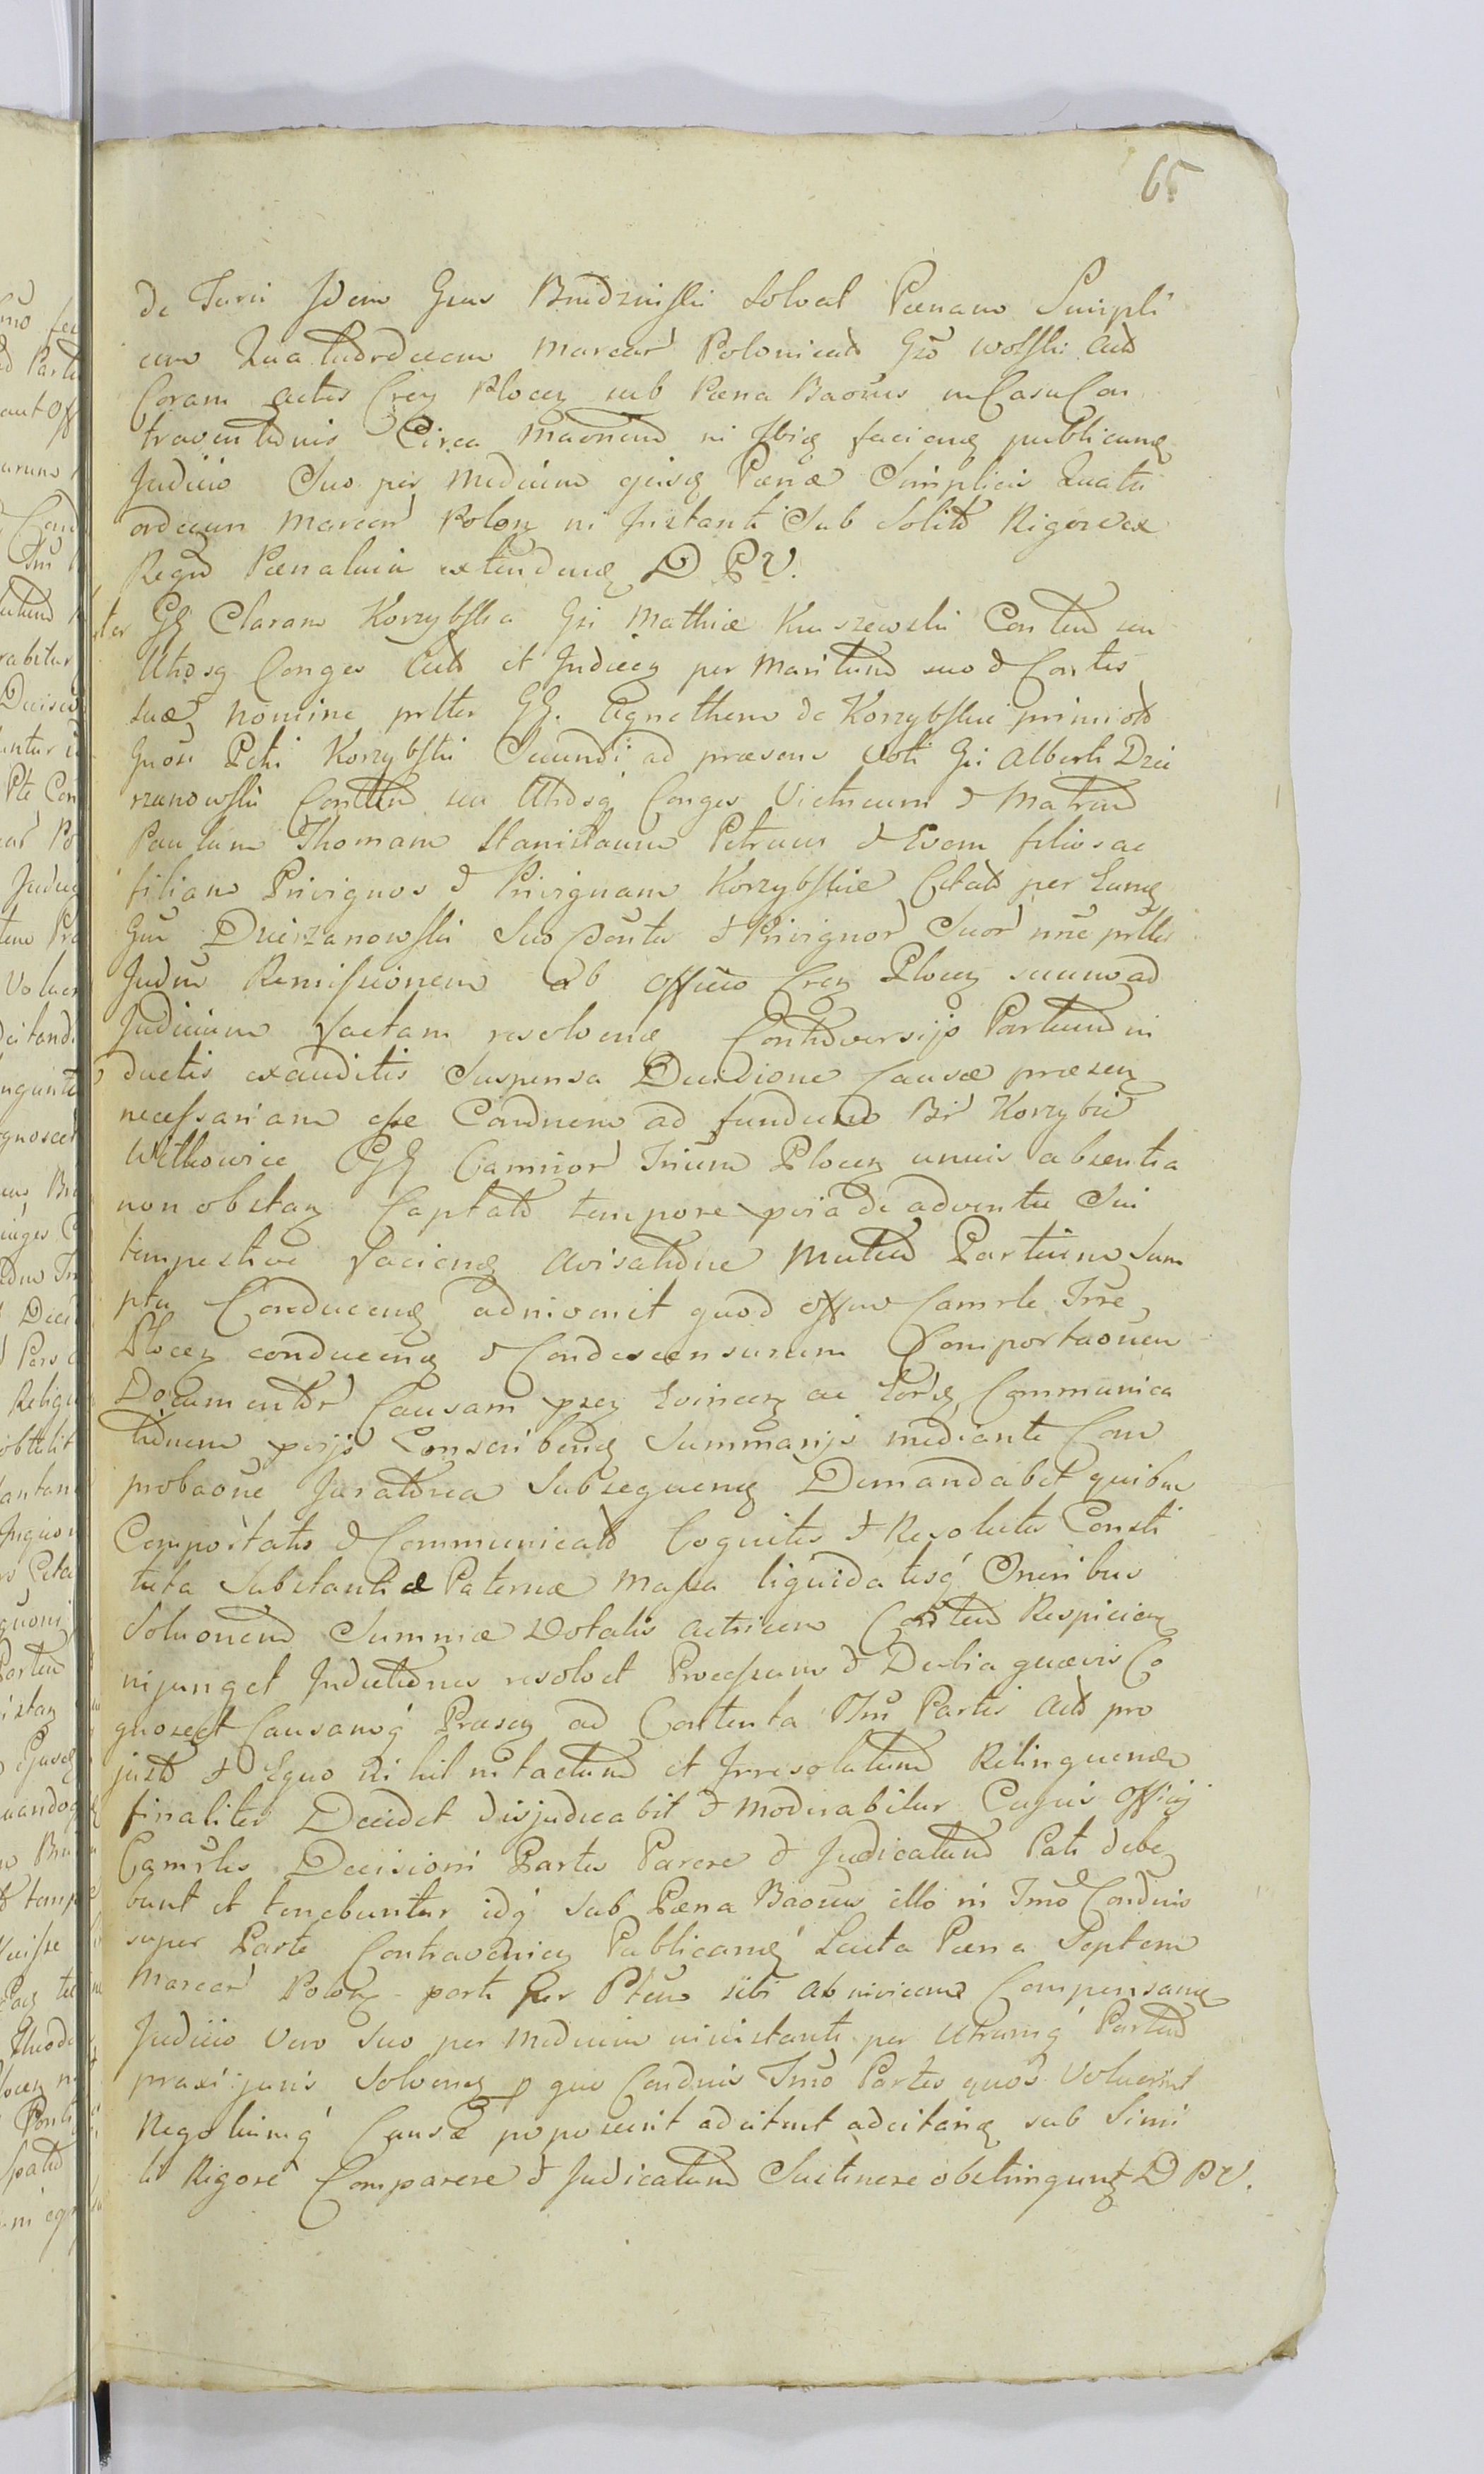 65
de Jurii Idem Gnus Budzinski solvat Pœnam Simpli
cem Quatuordecem Marcar Polonical Gso Wolski Act
Coram actis Cren Plocen sub Pœna Baonis in Casu Con
traventionis Circa Maonem in fbiq facienq publicanq
Judicio Suo per Medium ejusq Pœnæ Simplicis Quatu
ordecim Marcar Polon in Instanti Sub Solito Rigore ex
Regro Pœnalium extendenq D P V.
Inter GG Claram Korzybska Gsi Mathiæ Kuszewski Conten seu
Uthosq Conges Acts et Judicen per Maritum suo & Contis
suæ nomine prtter GG. Agnethem de Korzybskie primi oto
Gnosi Petri Korzybski Secundi ad præsens Voti Gsi Alberti Dzie
rzanowski Conten seu Uthosq Conges Vitricum & Matrem
Paulum Thomam Stanislaum Petrum & Evam filios ac
filiam Privignos & Privignam Korzybskie Citatos per Eunq
Gnu Dzierzanowski Suo Contis & Privignor Suor nne prtter
Judm Remissionem ab Officio Cren Plocen suumo ad
Judicium factam resolvenæ Controversijs Partium in
ductis exauditis Suspensa Decisione Causæ præsen
necessariam esse Condnem ad fundum Br Korzybie
Witkowice GG Camrior Trium Plocen unius absentia
non obstan Captato tempore pria de adventu Sui
tempestive facienq Avisatione Mutuo Partium Sum
ptu Conducenq adnivenit quod Offum Camrle Trre
Plocen conducenq & Condescensurum Comportaonem
Documentor Causam pzen Evincen ac Eorq Communica
tionem prijs Conscribenq Summarijs mediante Com
probaone Juratorea Subsequenq Demandabit quibus
Comportatis & Communicatis Cognitis & Resolutis Consti
tuta Substantiæ Paternæ Massa liquidatisq Oneribus
Soluonem Summæ Dotalis Actricem Conten Respicien
injunget Inductiones resolvet Processum & Dubia quævis Co
gnoscet Causamq Præsen ad Contenta Trm Partis Acto pro
justo & Equo Nihil intactum et Irresolutum Relinquendo
finaliter Decidet disjudicabit & Moderabitur Cujus Officij
Camrlis Decisioni Partes Parere & Judicatum Pati debe
bunt et tenebuntur idq sub Pœna Baonis illo in Trmo Condnis
super Parte Contravenien Publicanq Lucta Pœna Septem
Marcar Polon parti per Ptem sibi ab invicem Compensanq
Judicio Vero suo per Medium in instanti per Utramq Partem
praxi juris Solvenq pro quo Condnis Trmo Partes quos Voluerint
Negotiumq Causæ poposcerit adcitent adcitanq sub Simi
li Rigore Comparere & Judicatum Sustinere obstringunt D P V.